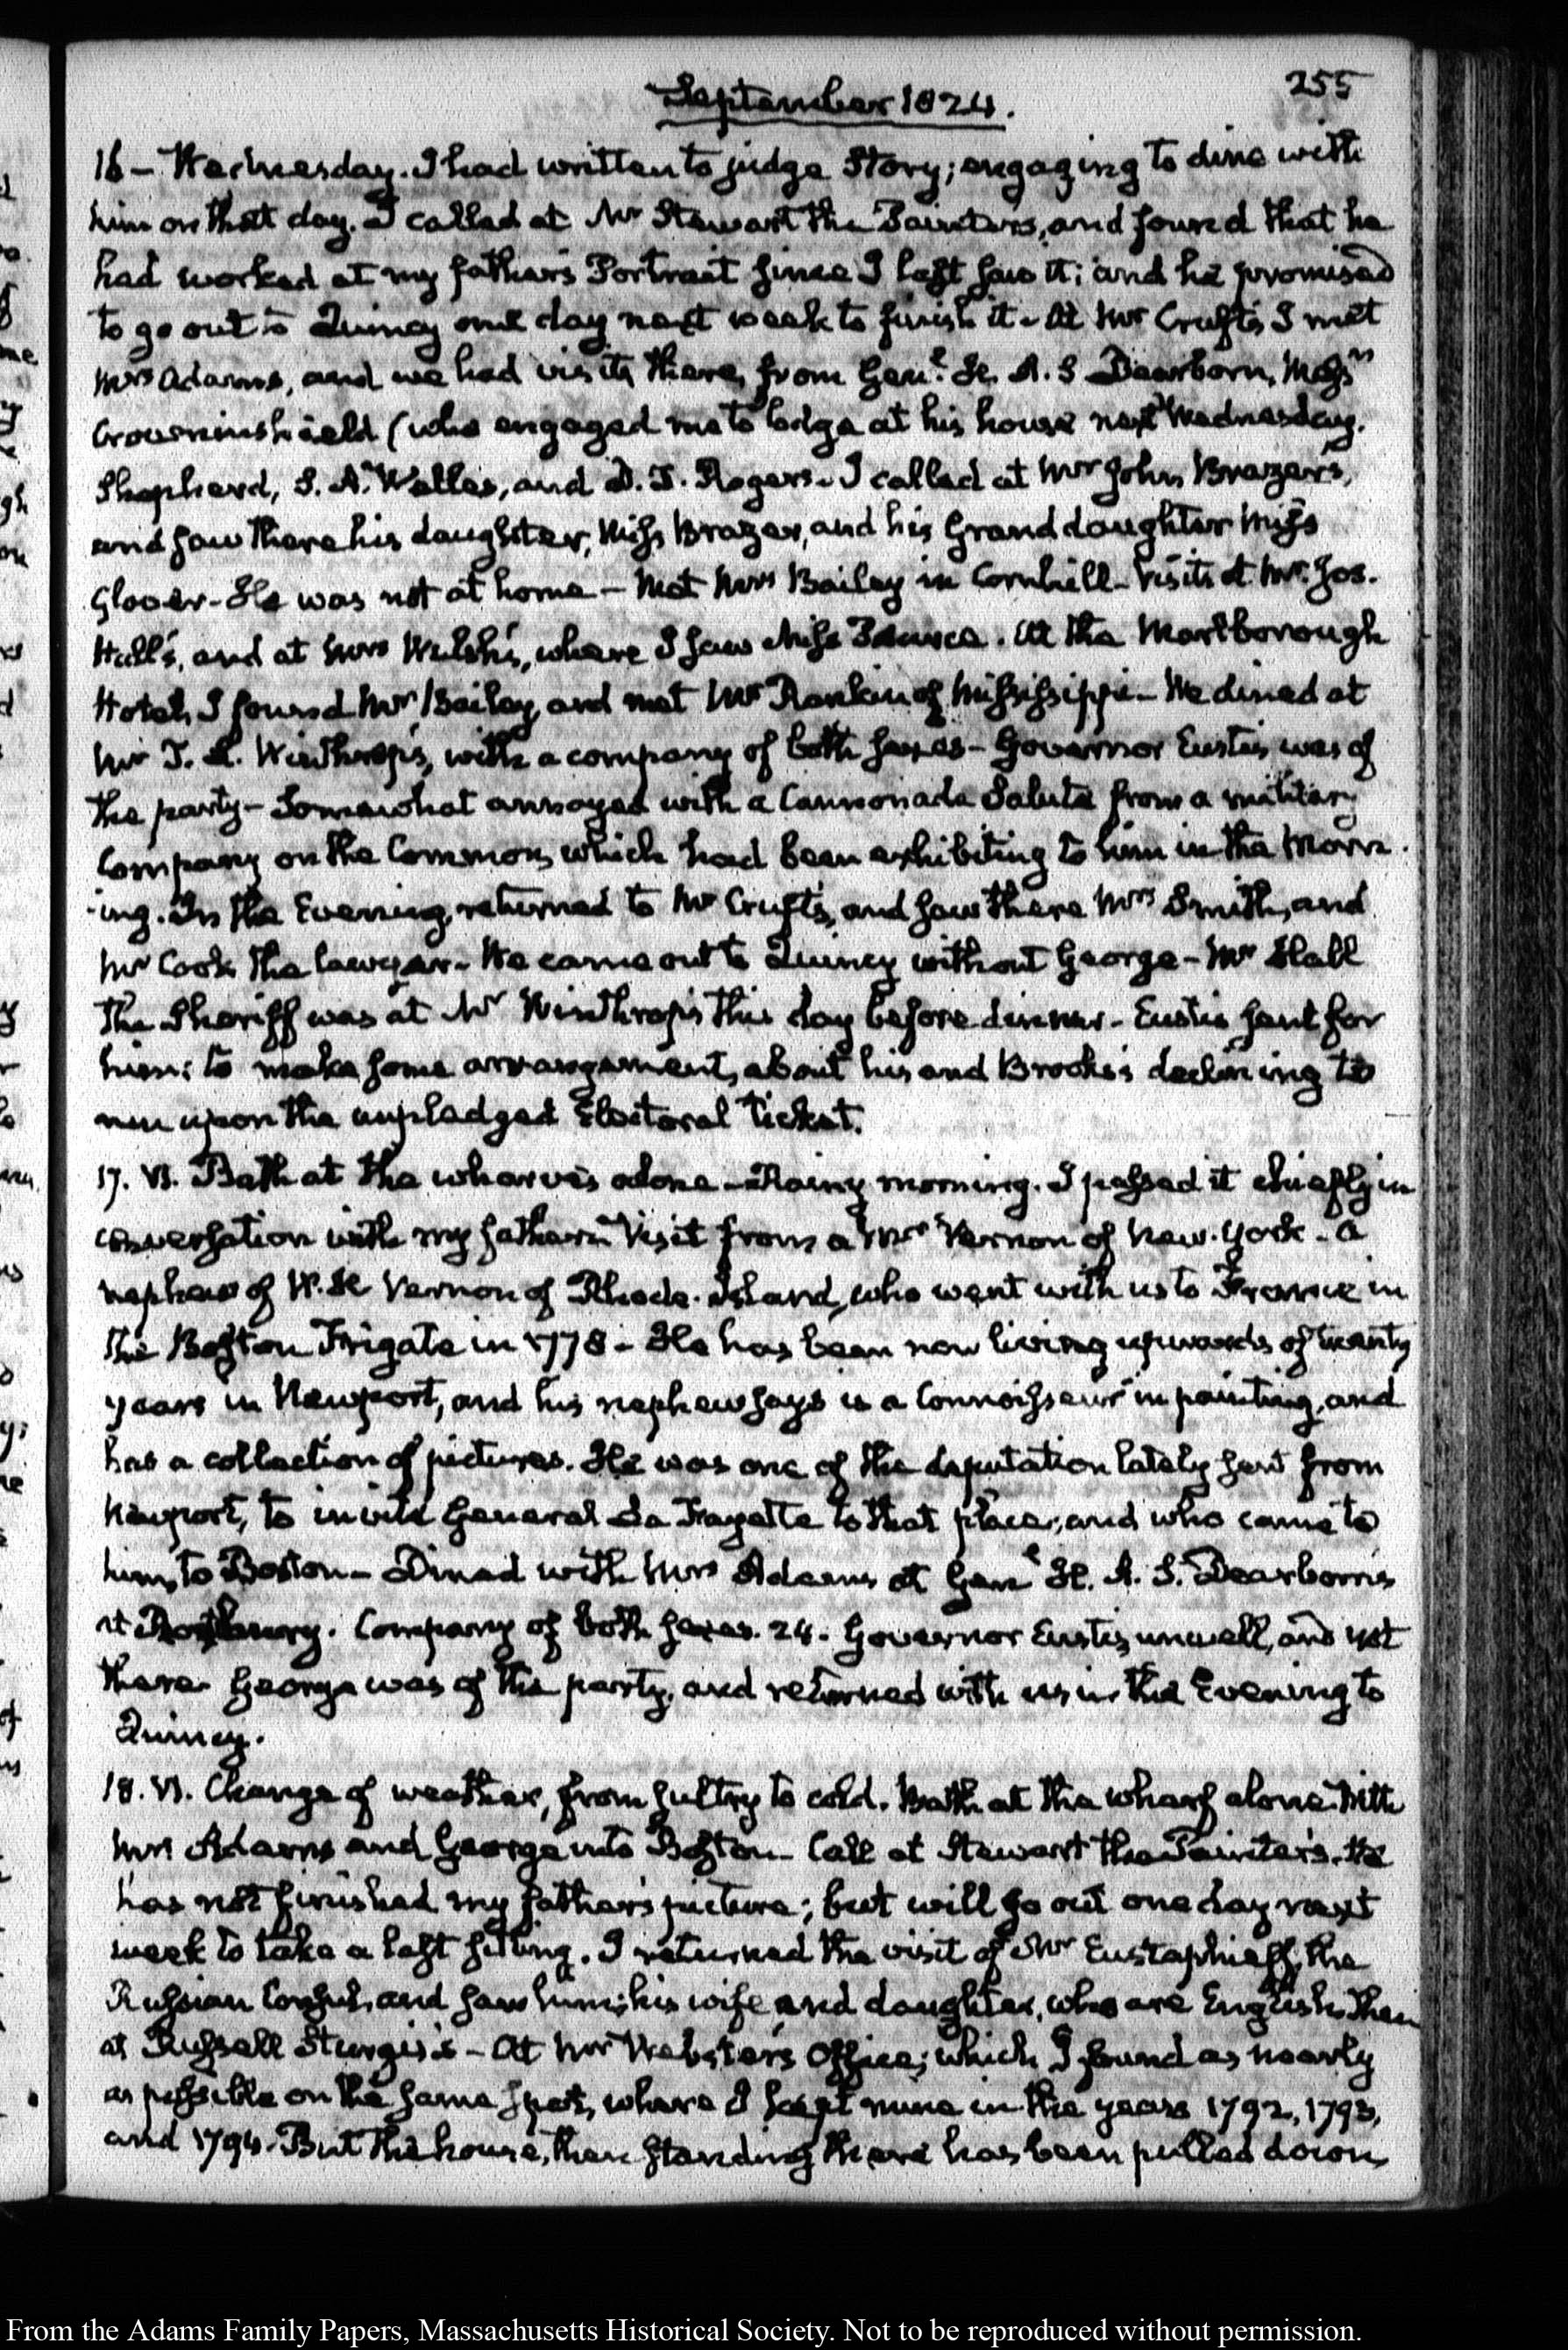 255
September 1824.
16 – Wednesday. I had written to judge Story; engaging to dine with
him on that day. I called at Mr Stewart the Painter's, and found that he
had worked at my father's Portrait since I last saw it; and he promised
to go out to Quincy one day next week to finish it – At Mr Cruft's, I met
Mrs Adams, and we had visits there, from Genl. H. A. S Dearborn, Messrs
Crowninshield (who engaged me to lodge at his house next Wednesday.
Shepherd, S. A. Welles, and D. I. Rogers – I called at Mr John Brazer's,
and saw there his daughter, Miss Brazer, and his Grand daughter Miss
Glover – He was not at home – Met Mrs Bailey in Cornhill – Visits at Mr. Jos.
Hall's, and at Mrs Welsh's, where I saw Miss . At the Marlborough
Hotel, I found Mr Bailey, and met Mr Rankin of Mississippi – We dined at
Mr T. L. Winthrop's, with a company of both sexes – Governor Eustis was of
the party – Somewhat annoyed with a Cannonade Salute from a military
Company on the Common, which had been exhibiting to him in the Morn-
-ing. In the Evening, returned to Mr Cruft's, and saw there Mrs Smith, and
Mr Cook the lawyer – We came out to Quincy without George – Mr Hall
the Sheriff was at Mr Winthrop's this day before dinner – Eustis sent for
him: to make some arrangement, about his and Brooks's declining to
run upon the unpledged Electoral ticket.
17. VI. Bath at the wharves alone – Rainy morning. I passed it chiefly in
conversation with my father – Visit from a Mr Vernon of New-York – a
nephew of W. H Vernon of Rhode-Island, who went with us to France in
the Boston Frigate in 1778 – He has been now living upwards of twenty
years in Newport, and his nephew says is a Connoisseur in painting, and
has a collection of pictures. He was one of the deputation lately sent from
Newport, to invite General La Fayette to that place; and who came to
him, to Boston – Dined with Mrs Adams at Genl H. A. S. Dearborn's
at Roxbury. Company of both sexes. 24. Governor Eustis, unwell, and yet
there. George was of the party, and returned with us in the Evening to
Quincy.
18. VI. Change of weather, from sultry to cold. Bath at the wharf alone. With
Mrs Adams and George into Boston – Call at Stewart the Painter's. He
has not finished my father's picture; but will go out one day next
week to take a last sitting. I returned the visit of Mr Eustaphieff, the
Russian Consul, and saw him; his wife and daughter, who are English. Then
at Russell Sturgis's – At Mr Webster's Office; which I found as nearly
as possible on the same spot, where I kept mine in the years 1792, 1793,
and 1794. But the house, then standing there has been pulled down,
From the Adams Family Papers, Massachusetts Historical Society. Not to be reproduced without permission.